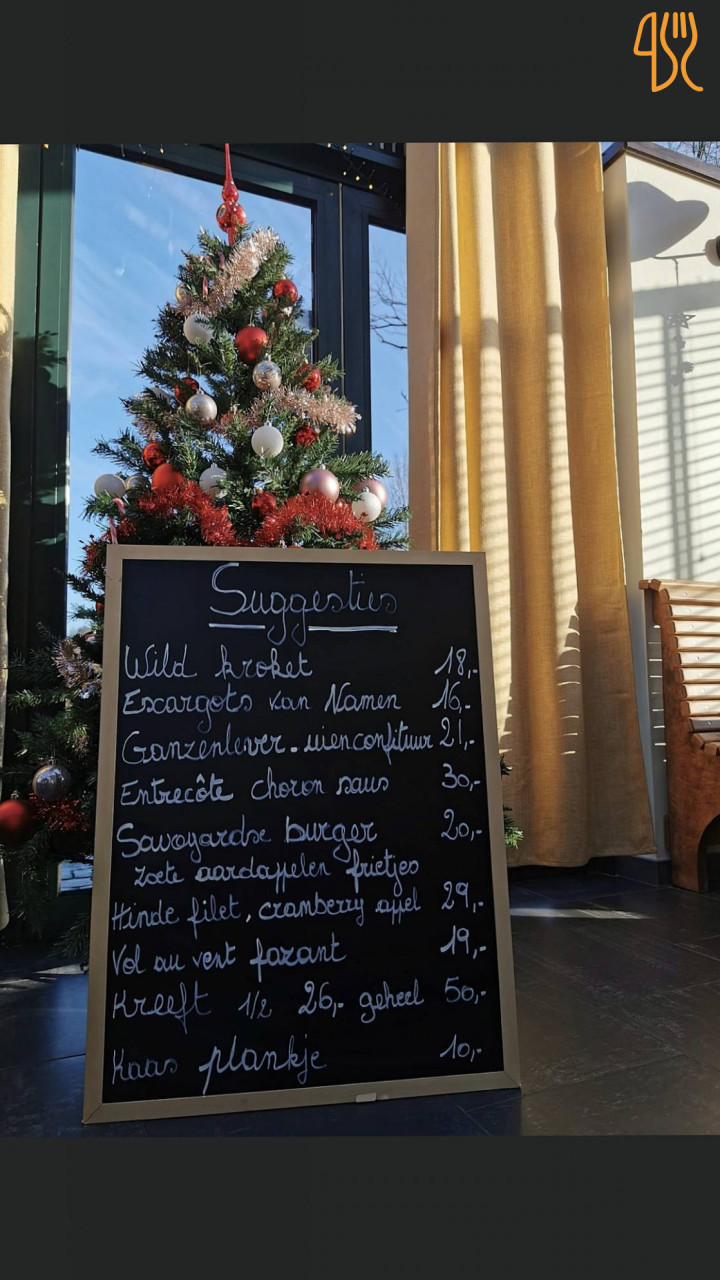 Suggesties
Wild kroket 18,-
Escargots van Namen 16,-
Ganzenlever - uienconfituur 21,-
Entrecôte choron saus 30,-
Savoyardse burger 20,-
zoete aardappelen frietjes
Hinde filet, cramberry appel 29,-
Vol au vent fazant 19,-
Kreeft 1/2 26,- geheel 50,-
Kaas plankje 10,-